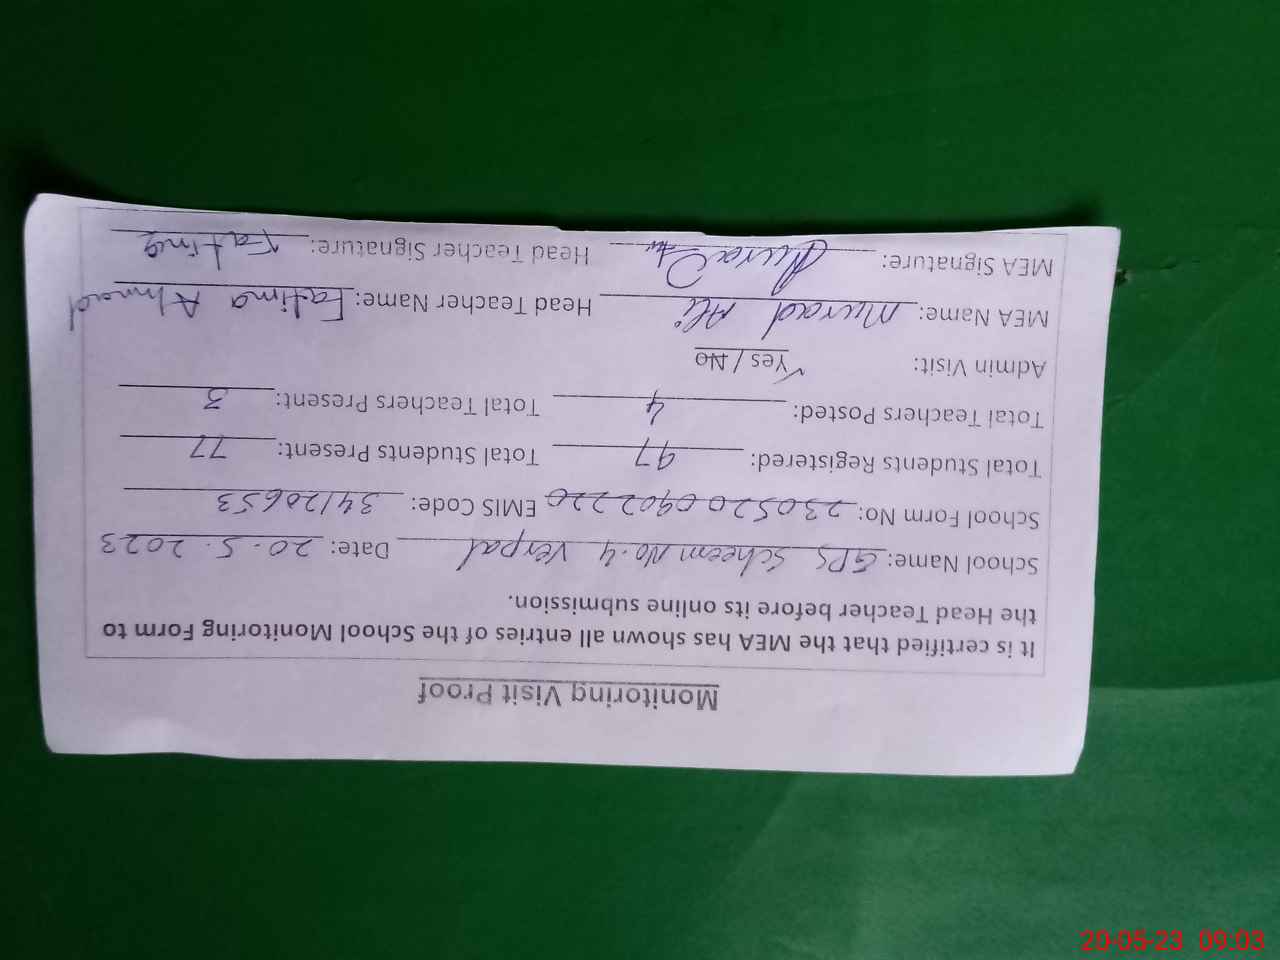 Monitoring Visit Proof
It is certified that the MEA has shown all entries of the School Monitoring Form to
the Head Teacher before its online submission.
School Name: GPS Scheem No. 4 Verpal Date: 20.5.2023
School Form No: 230520090222 0 EMIS Code: 34120653
Total Students Registered: 97 Total Students Present: 77
Total Teachers Posted: 4 Total Teachers Present: 3
Admin Visit: Yes / No
MEA Name: Murad Ali Head Teacher Name: Fatima Ahmad
MEA Signature: Head Teacher Signature: Fatima
20-05-23 09:03